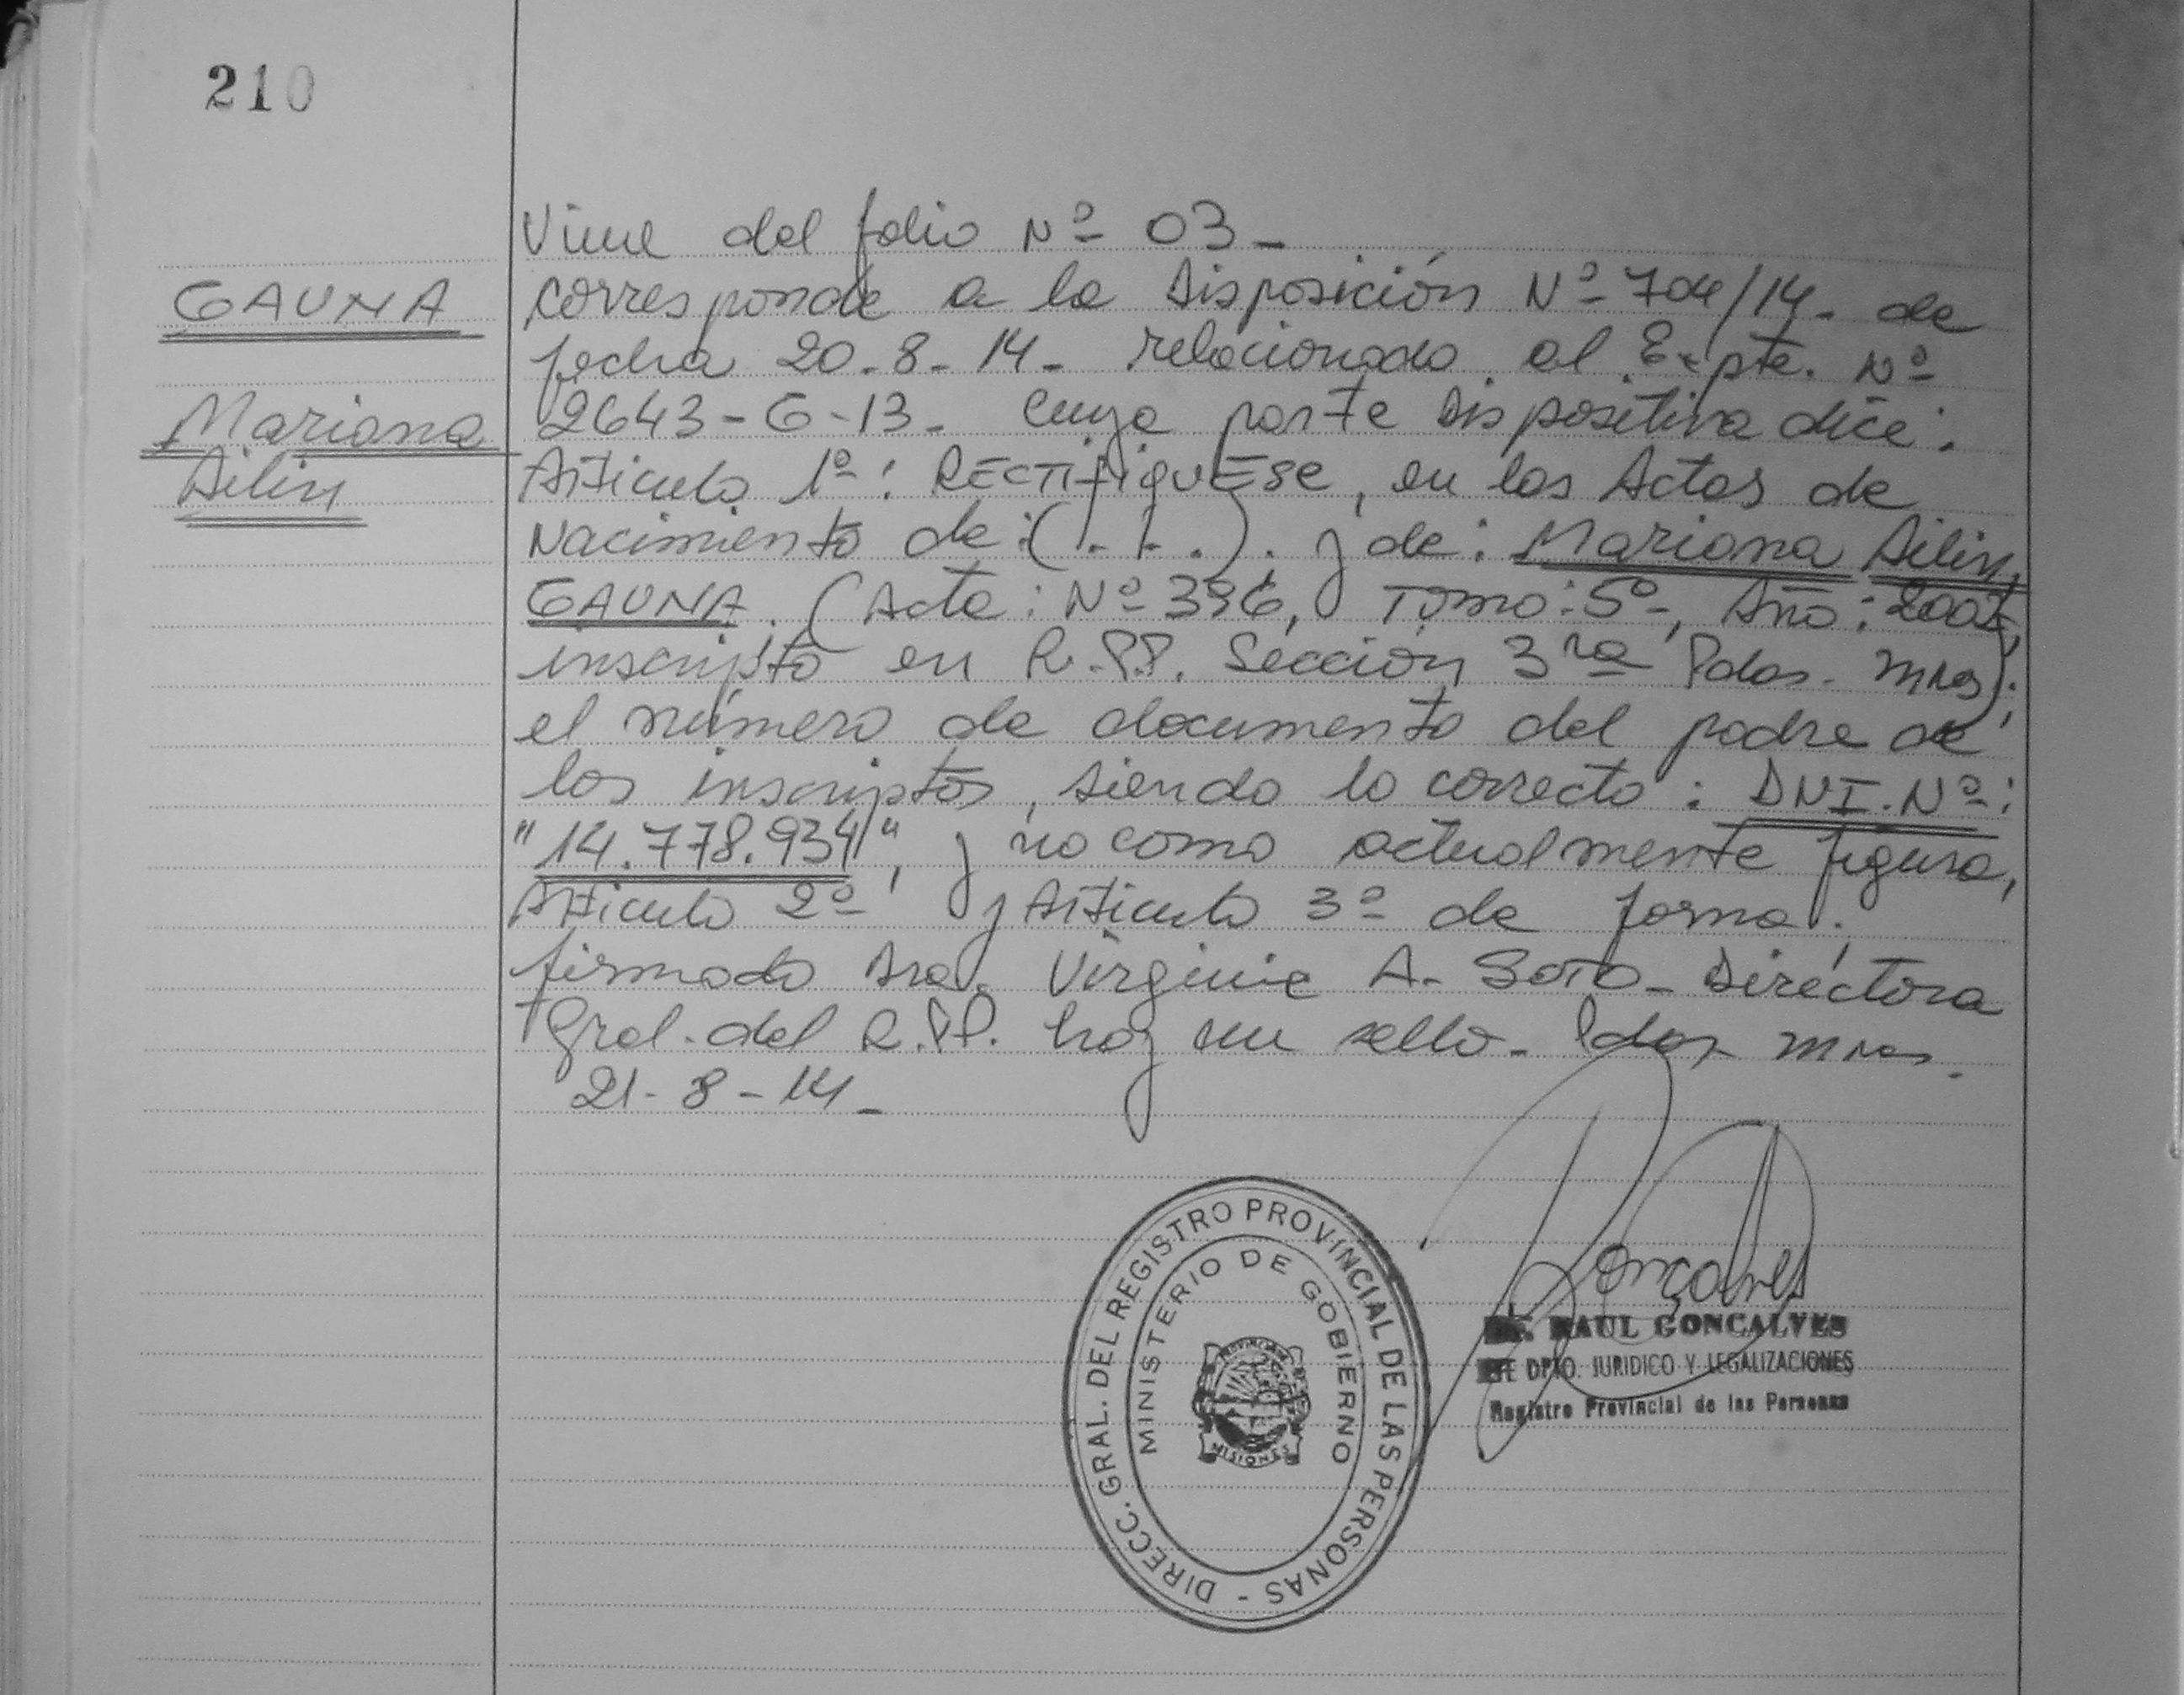 210
GAUNA
Mariana
Ailin
Viene del folio Nº 03_
corresponde a la Disposición Nº 704/14_ de
fecha 20-8-14_ relacionado al Expte. Nº
2643-G-13_ Cuya parte Dispositiva dice:
Articulo 1º: RECTIFIQUESE, en las Actas de
Nacimiento de: (. - . - .). y de: Mariana Ailin
GAUNA. (Acta: Nº 396, Tomo: 5º-, Año:
inscripto en R.P.P. Sección 3ra Pdas. Mnes);
el número de documento del padre de
los inscriptos, siendo lo correcto: DNI. Nº:
"14.778.934", y no como actualmente figura,
Articulo 2º y Articulo 3º de forma.;
firmado Dra. Virginia A. SOTO_ Directora
Gral. del R.P.P. hay un sello_ Pdas Mnes.
21-8-14_
DIRECC. GRAL. DEL REGISTRO PROVINCIAL DE LAS PERSONAS -
MINISTERIO DE GOBIERNO
MISIONES
Goncalves
RAUL GONCALVES
DPTO. JURIDICO Y LEGALIZACIONES
Registro Provincial de las Personas